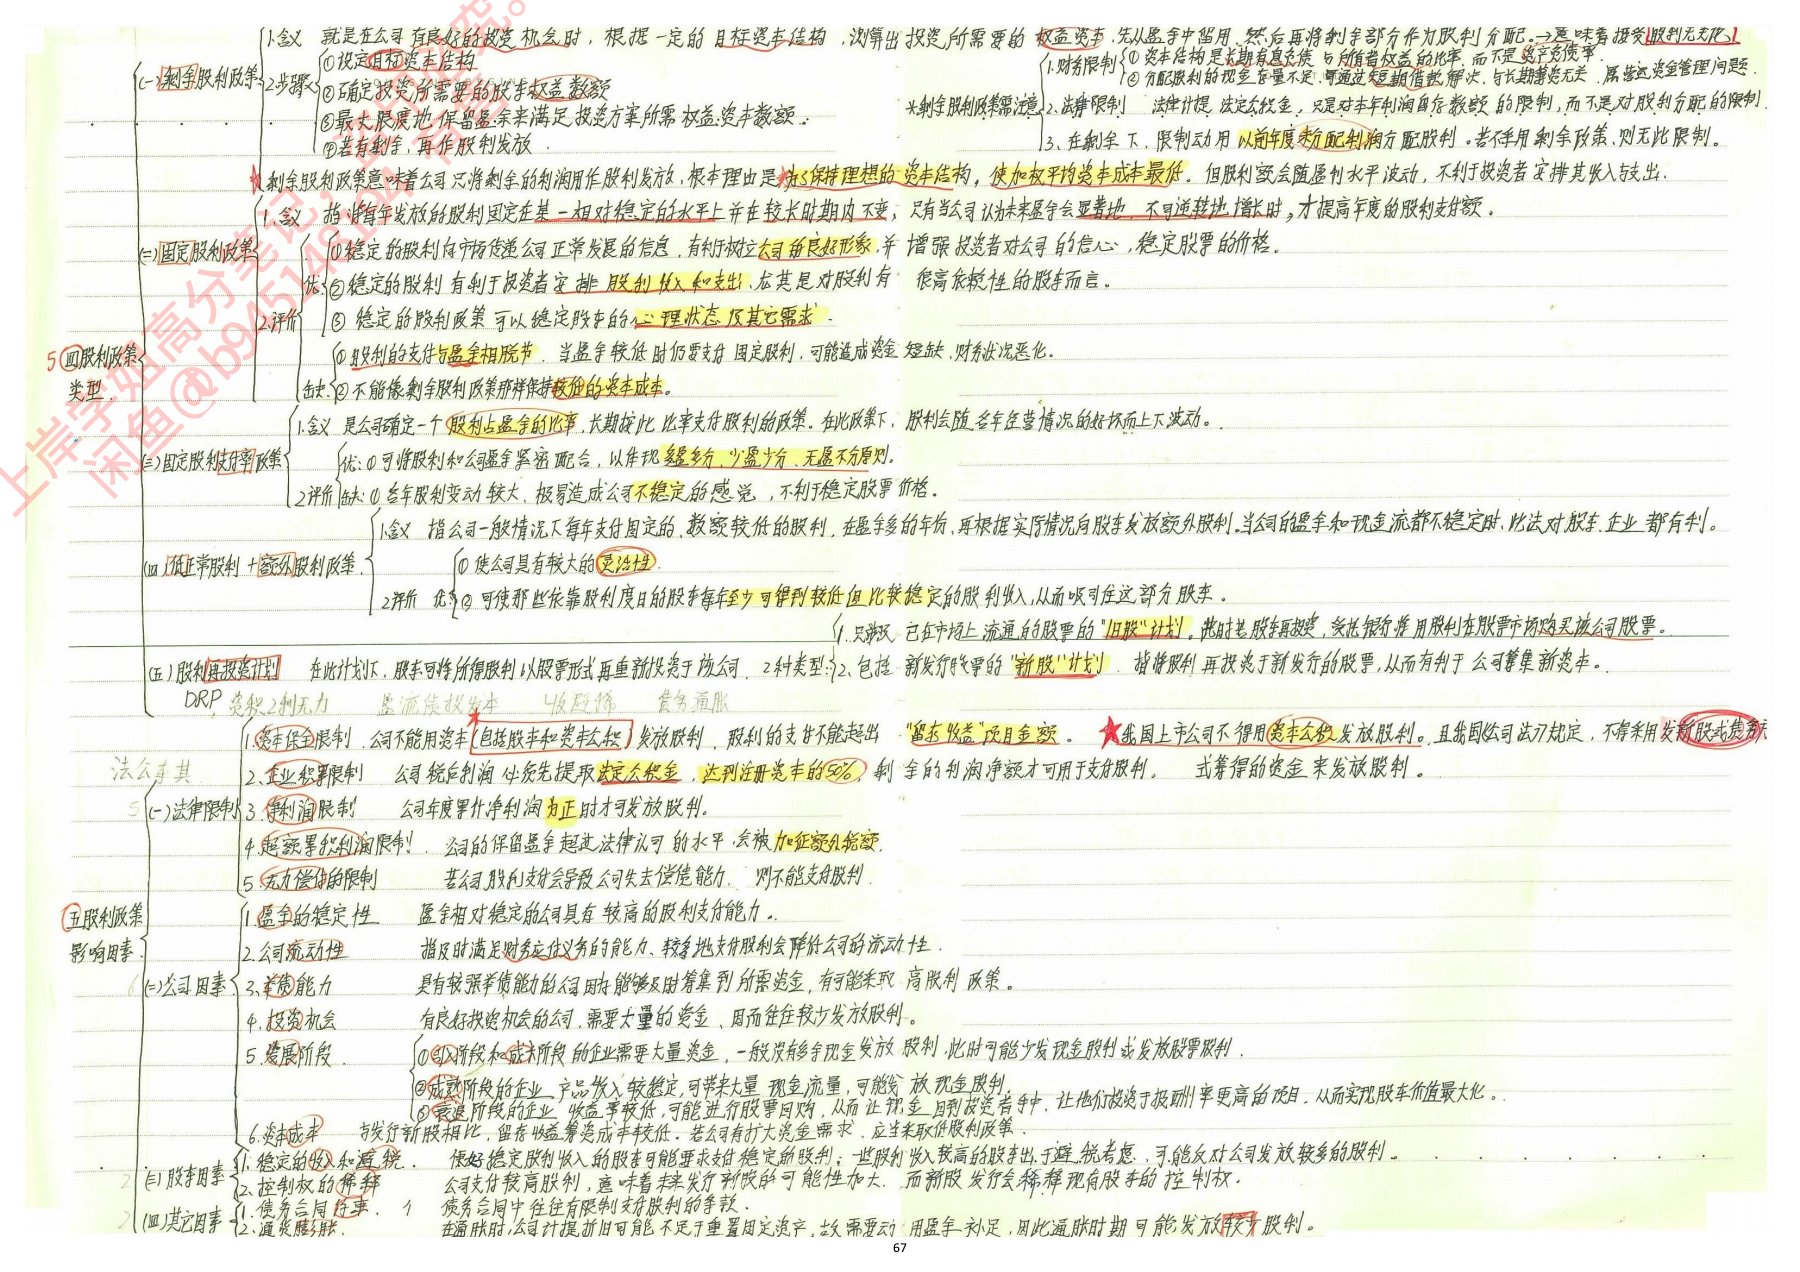 1.含义 就是在公司有良好的投资机会时，根据一定的目标资本结构，测算出投资所需要的权益资本，先从盈余中留用，然后再将剩余部分作为股利分配。→意味着接受股利无关论
(一)剩余股利政策
2.步骤
①设定目标资本结构
②确定投资所需要的股东权益数额
③最大限度地保留盈余来满足投资方案所需权益资本数额。
④若有剩余，再作股利发放.
*剩余股利政策需注意
1.财务限制 ①资本结构是长期有息负债与所有者权益的比率，而不是资产负债率.
②分配股利的现金存量不足，可通过短期借款解决，与长期筹资无关. 属营运资金管理问题.
2.法律限制 法律计提法定公积金，只是对本年利润留存数额的限制，而不是对股利分配的限制.
3、在剩余下，限制动用以前年度未分配利润分配股利。若不用剩余政策、则无此限制。
★剩余股利政策意味着公司只将剩余的利润用作股利发放，根本理由是为了保持理想的资本结构，使加权平均资本成本最低。但股利额会随盈利水平波动，不利于投资者安排其收入与支出.
(二)固定股利政策
1.含义 指将每年发放的股利固定在某一相对稳定的水平上并在较长时期内不变，只有当公司认为未来盈余会显著地、不可逆转地增长时，才提高年度的股利支付额。
2.评价
优
①稳定的股利向市场传递公司正常发展的信息，有利于树立公司的良好形象，并增强投资者对公司的信心，稳定股票的价格。
②稳定的股利有利于投资者安排股利收入和支出，尤其是对股利有很高依赖性的股东而言。
③稳定的股利政策可以稳定股东的心理状态及其它需求.
缺:
①股利的支付与盈余相脱节. 当盈余较低时仍要支付固定股利，可能造成资金短缺、财务状况恶化。
②不能像剩余股利政策那样保持较低的资本成本。
5 四股利政策类型.
(三)固定股利支付率政策
1.含义 是公司确定一个股利占盈余的比率，长期按此比率支付股利的政策. 在此政策下，股利会随各年经营情况的好坏而上下波动。
2评价
优:①可将股利和公司盈余紧密配合，以体现多盈多分、少盈少分、无盈不分原则。
缺:①各年股利变动较大、极易造成公司不稳定的感觉，不利于稳定股票价格。
(四)低正常股利+额外股利政策.
1.含义 指公司一般情况下每年支付固定的、数额较低的股利，在盈余多的年份，再根据实际情况向股东发放额外股利。当公司的盈余和现金流都不稳定时，此法对股东、企业都有利。
2评价 优:
①使公司具有较大的灵活性.
②可使那些依靠股利度日的股东每年至少可得到较低但比较稳定的股利收入，从而吸引住这部分股东.
(五)股利再投资计划 在此计划下，股东可将所得股利以股票形式再重新投资于该公司. 2种类型:
1.只涉及已在市场上流通的股票的"旧股"计划。此时若股东再投资，受托银行将用股利在股票市场购买该公司股票。
2、包括新发行股票的"新股"计划. 指将股利再投资于新发行的股票，从而有利于公司筹集新资本。
DRP 资积2利无力
收避稀 债务通胀
法公本其
五股利政策影响因素
(一)法律限制
1.资本保全限制. 公司不能用资本(包括股本和资本公积)发放股利，股利的支付不能超出"留存收益"项目金额。 ★我国上市公司不得用资本公积发放股利。且我国《公司法》规定，不得采用发新股或债券方式筹得的资金来发放股利。
2、企业积累限制 公司税后利润必须先提取法定公积金，达到注册资本的50%，剩余的利润净额才可用于支付股利。
3.净利润限制 公司年度累计净利润为正时才可发放股利。
4.超额累积利润限制. 公司的保留盈余超过法律认可的水平，会被加征额外税额.
5.无力偿付的限制 若公司股利支付会导致公司失去偿债能力，则不能支付股利.
(二)公司因素
1.盈余的稳定性 盈余相对稳定的公司具有较高的股利支付能力。
2.公司流动性 指及时满足财务应付义务的能力、较多地支付股利会降低公司的流动性.
3.举债能力 具有较强举债能力的公司因为能够及时筹集到所需资金，有可能采取高股利政策。
4.投资机会 有良好投资机会的公司，需要大量的资金、因而往往较少发放股利。
5.发展阶段.
①引入阶段和成长阶段的企业需要大量资金，一般没有多余现金发放股利，此时可能少发现金股利或发放股票股利.
②成熟阶段的企业 产品收入较稳定，可带来大量现金流量，可能发放现金股利.
③衰退阶段的企业 收益率较低，可能进行股票回购，从而让现金回到投资者手中，让他们投资于报酬率更高的项目，从而实现股东价值最大化。
6.资本成本 与发行新股相比，留存收益筹资成本较低. 若公司有扩大资金需求、应当采取低股利政策.
(三)股东因素
1.稳定的收入和避税. 偏好稳定股利收入的股东可能要求支付稳定的股利；一些股利收入较高的股东出于避税考虑，可能反对公司发放较多的股利。
2、控制权的稀释 公司支付较高股利，意味着未来发行新股的可能性加大. 而新股发行会稀释现有股东的控制权.
(四)其它因素
1.债务合同 债务合同中往往有限制支付股利的条款.
2.通货膨胀. 在通胀时，公司计提折旧可能不足于重置固定资产，故需要动用盈余补足，因此通胀时期可能发放较少股利。
67
上岸学姐高分笔记，
闲鱼@b94514819DA